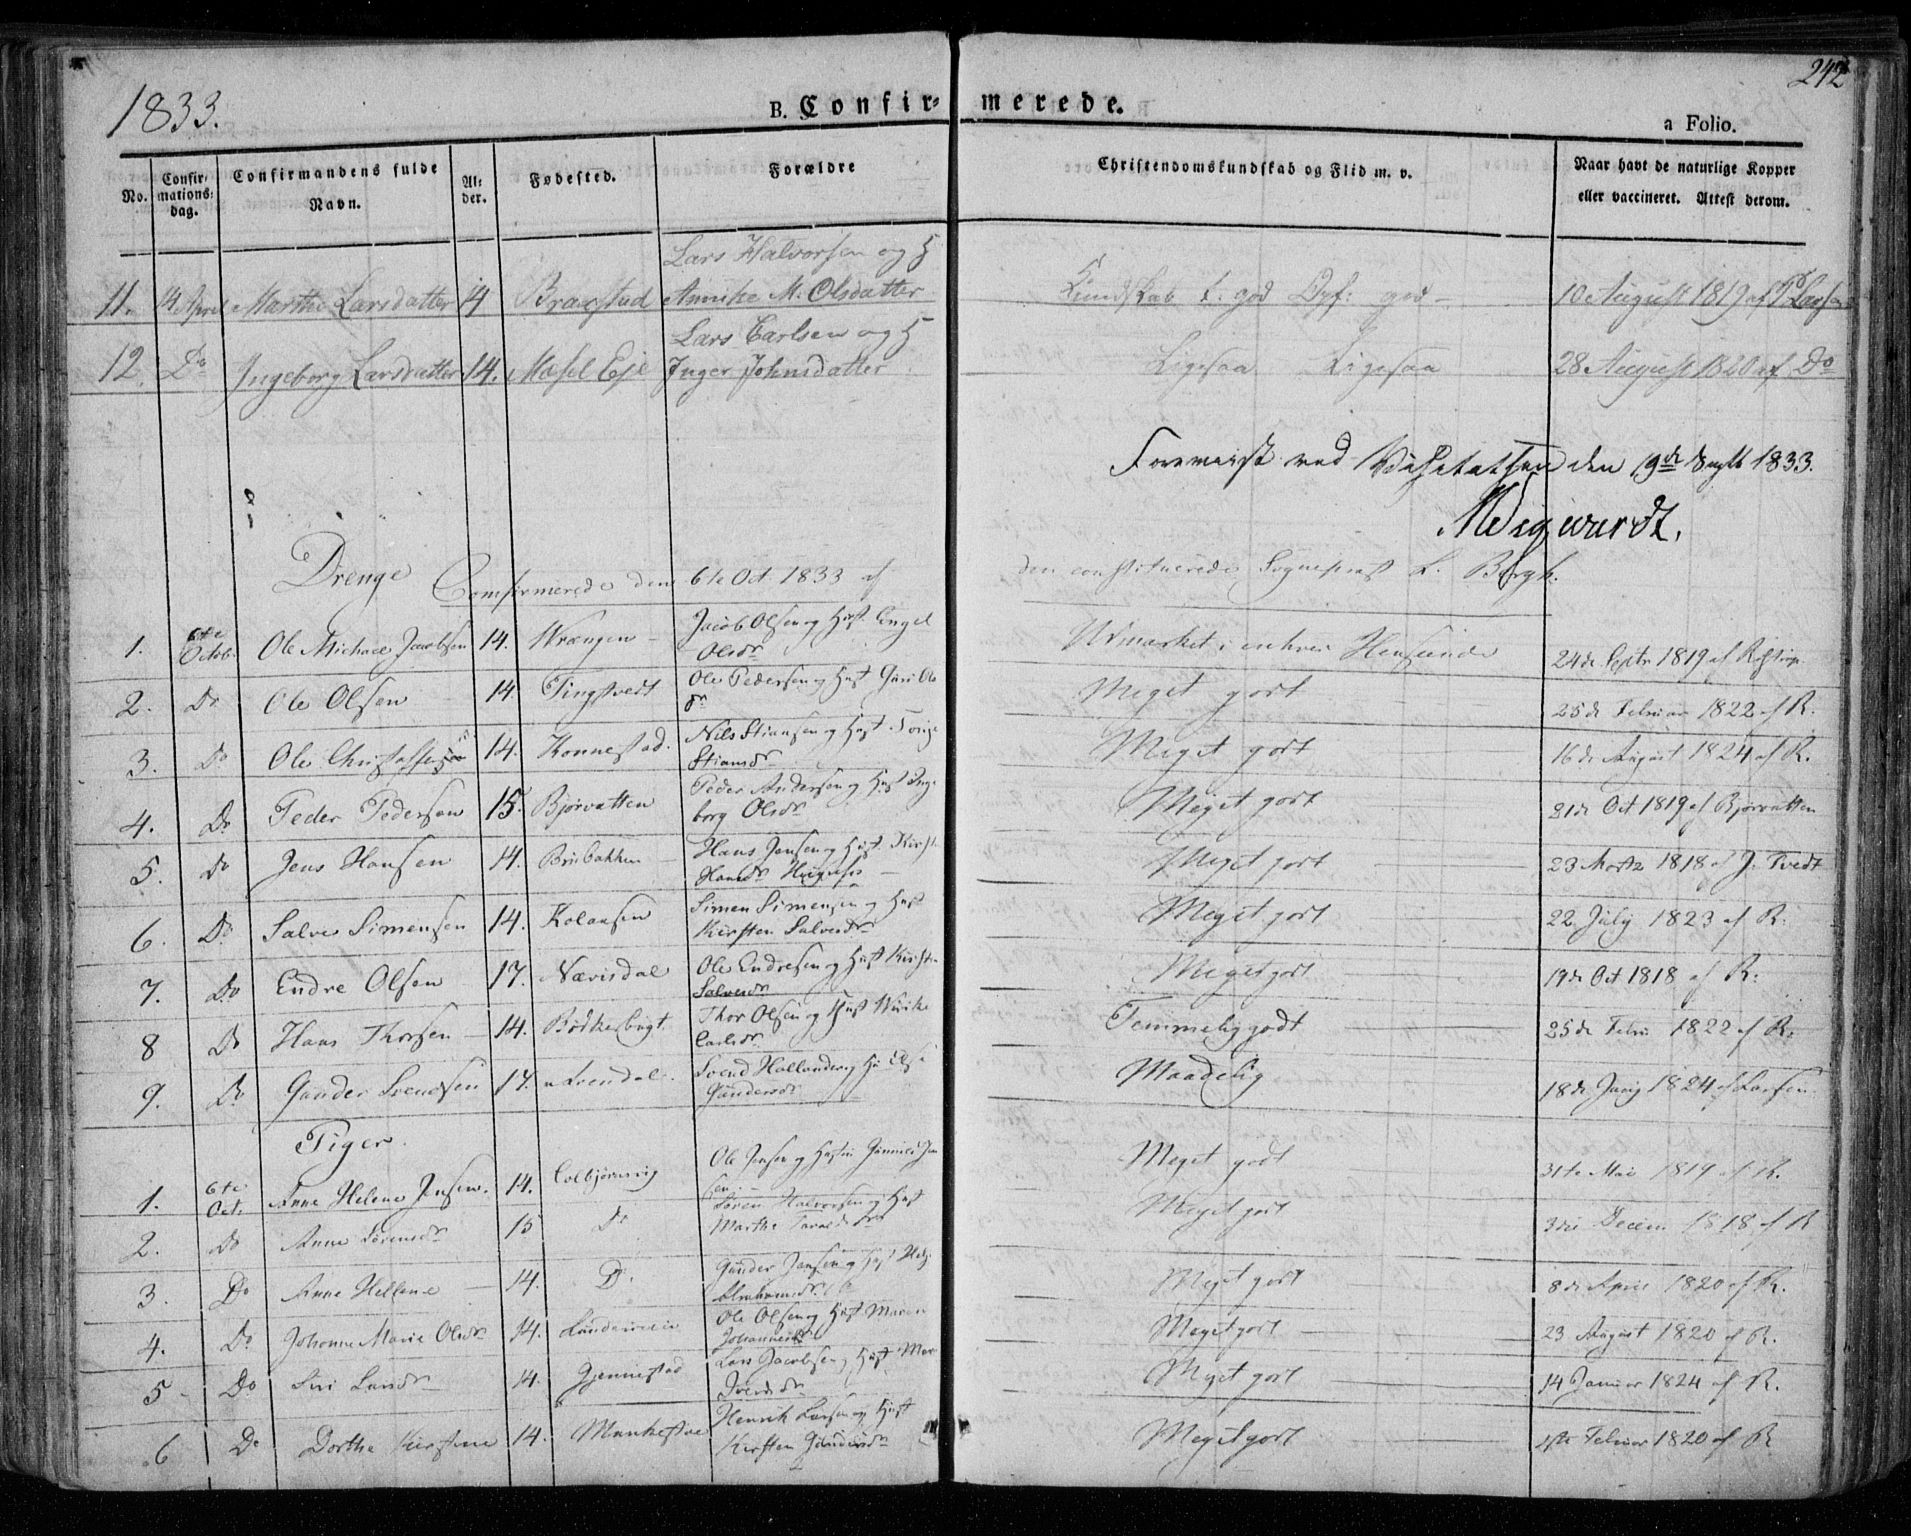 1833.
242
B. Confir-merede.
a Folio.
No.
Confir-mations-dag.
Confirmandens fulde Navn.
Al-der.
Fødested.
Forældre
Christendomskundskab og Flid m. v.
Naar havt de naturlige Kopper eller vaccineret. Attest derom.
Lars Halvorsen og H
11. 14 April Marthe Larsdatter 14 Braastad Annike M. Olsdatter Kundskab t: god Opf: god 10 August 1819 af
Lars Carlsen og H
12. Do Ingeborg Larsdatter 14. Inger Johnsdatter Ligesaa Ligesaa 28 August 1820 af Do
ved Visitatsen den 19de 1833.
Drenge
Confirmerede den 6te Oct. 1833 af den constituerede Sognepræst L. Bergh.
1. 6te Octob. Ole Michael Jacobsen 14. Wrængen Jacob Olsen og Hust. Engel Olsdr Udmærket i enhver Henseende 24de Septr 1819 af
2. Do Ole Olsen 14 Tingstvedt Ole Pedersen og Hust Guri Ols dr Meget godt 25de Februar 1822 af R.
3. Do Ole 14. Konnestad. Nils Stiansen og Hust. Stiansdr Meget godt 16de August 1824 af R.
4. Do Peder Pedersen 15. Bjorvatten Peder Andersen og Hust Inge borg Olsdr Meget godt 21de Oct 1819 af Bjorvatten
5. Do Jens Hansen 14. Hans Jensen og Hust. Kirst Hansdr Meget godt 23 Martz 1818 af J. Tvedt
6. Do Salve Simensen 14. Simen Simensen og Hust Kirsten Salvesdr Meget godt 22. July 1823 af R.
7. Do Endre Olsen 17. Nævisdal Ole Endresen og Hust Kirsten Salvesdr Meget godt 19de Oct 1818 af R.
8 Do Hans Thorsen 14. Thor Olsen og Hust Carlsdr Temmelig godt 25de Febru 1822 af R.
9. Do Gunder Svendsen 17. Svend og Hu Else Gundersdr Maadelig 18de 1824 af Larsen
Piger.
1. 6te Oct. Anne Helene Jensen. 14. Colbjørnsvig Ole Jensen og Jen sen. Meget godt 31te Mai 1819 af R.
2. Do Anne Sørensdr 15 Do Søren Halvorsen og Hust Marthe Meget godt 3die Decem 1818 af R
3. Do Anne Hellene 14. Do Gunder Jensen og Hust Meget godt 8de April 1820 af R.
4. Do Johanne Marie Olsdr 14. Ole Olsen og Hust Maren Meget godt 23 August 1820 af R.
5 Do Siri Larsdr 14. Gjennestad Lars Jacobsen og Hust Mar Meget godt 14 Januar 1824 af R.
6 Do Dorthe Kirstine 14. Henrik Larsen og Hust Kirsten Gundersdr Meget godt 4de Februar 1820 af R